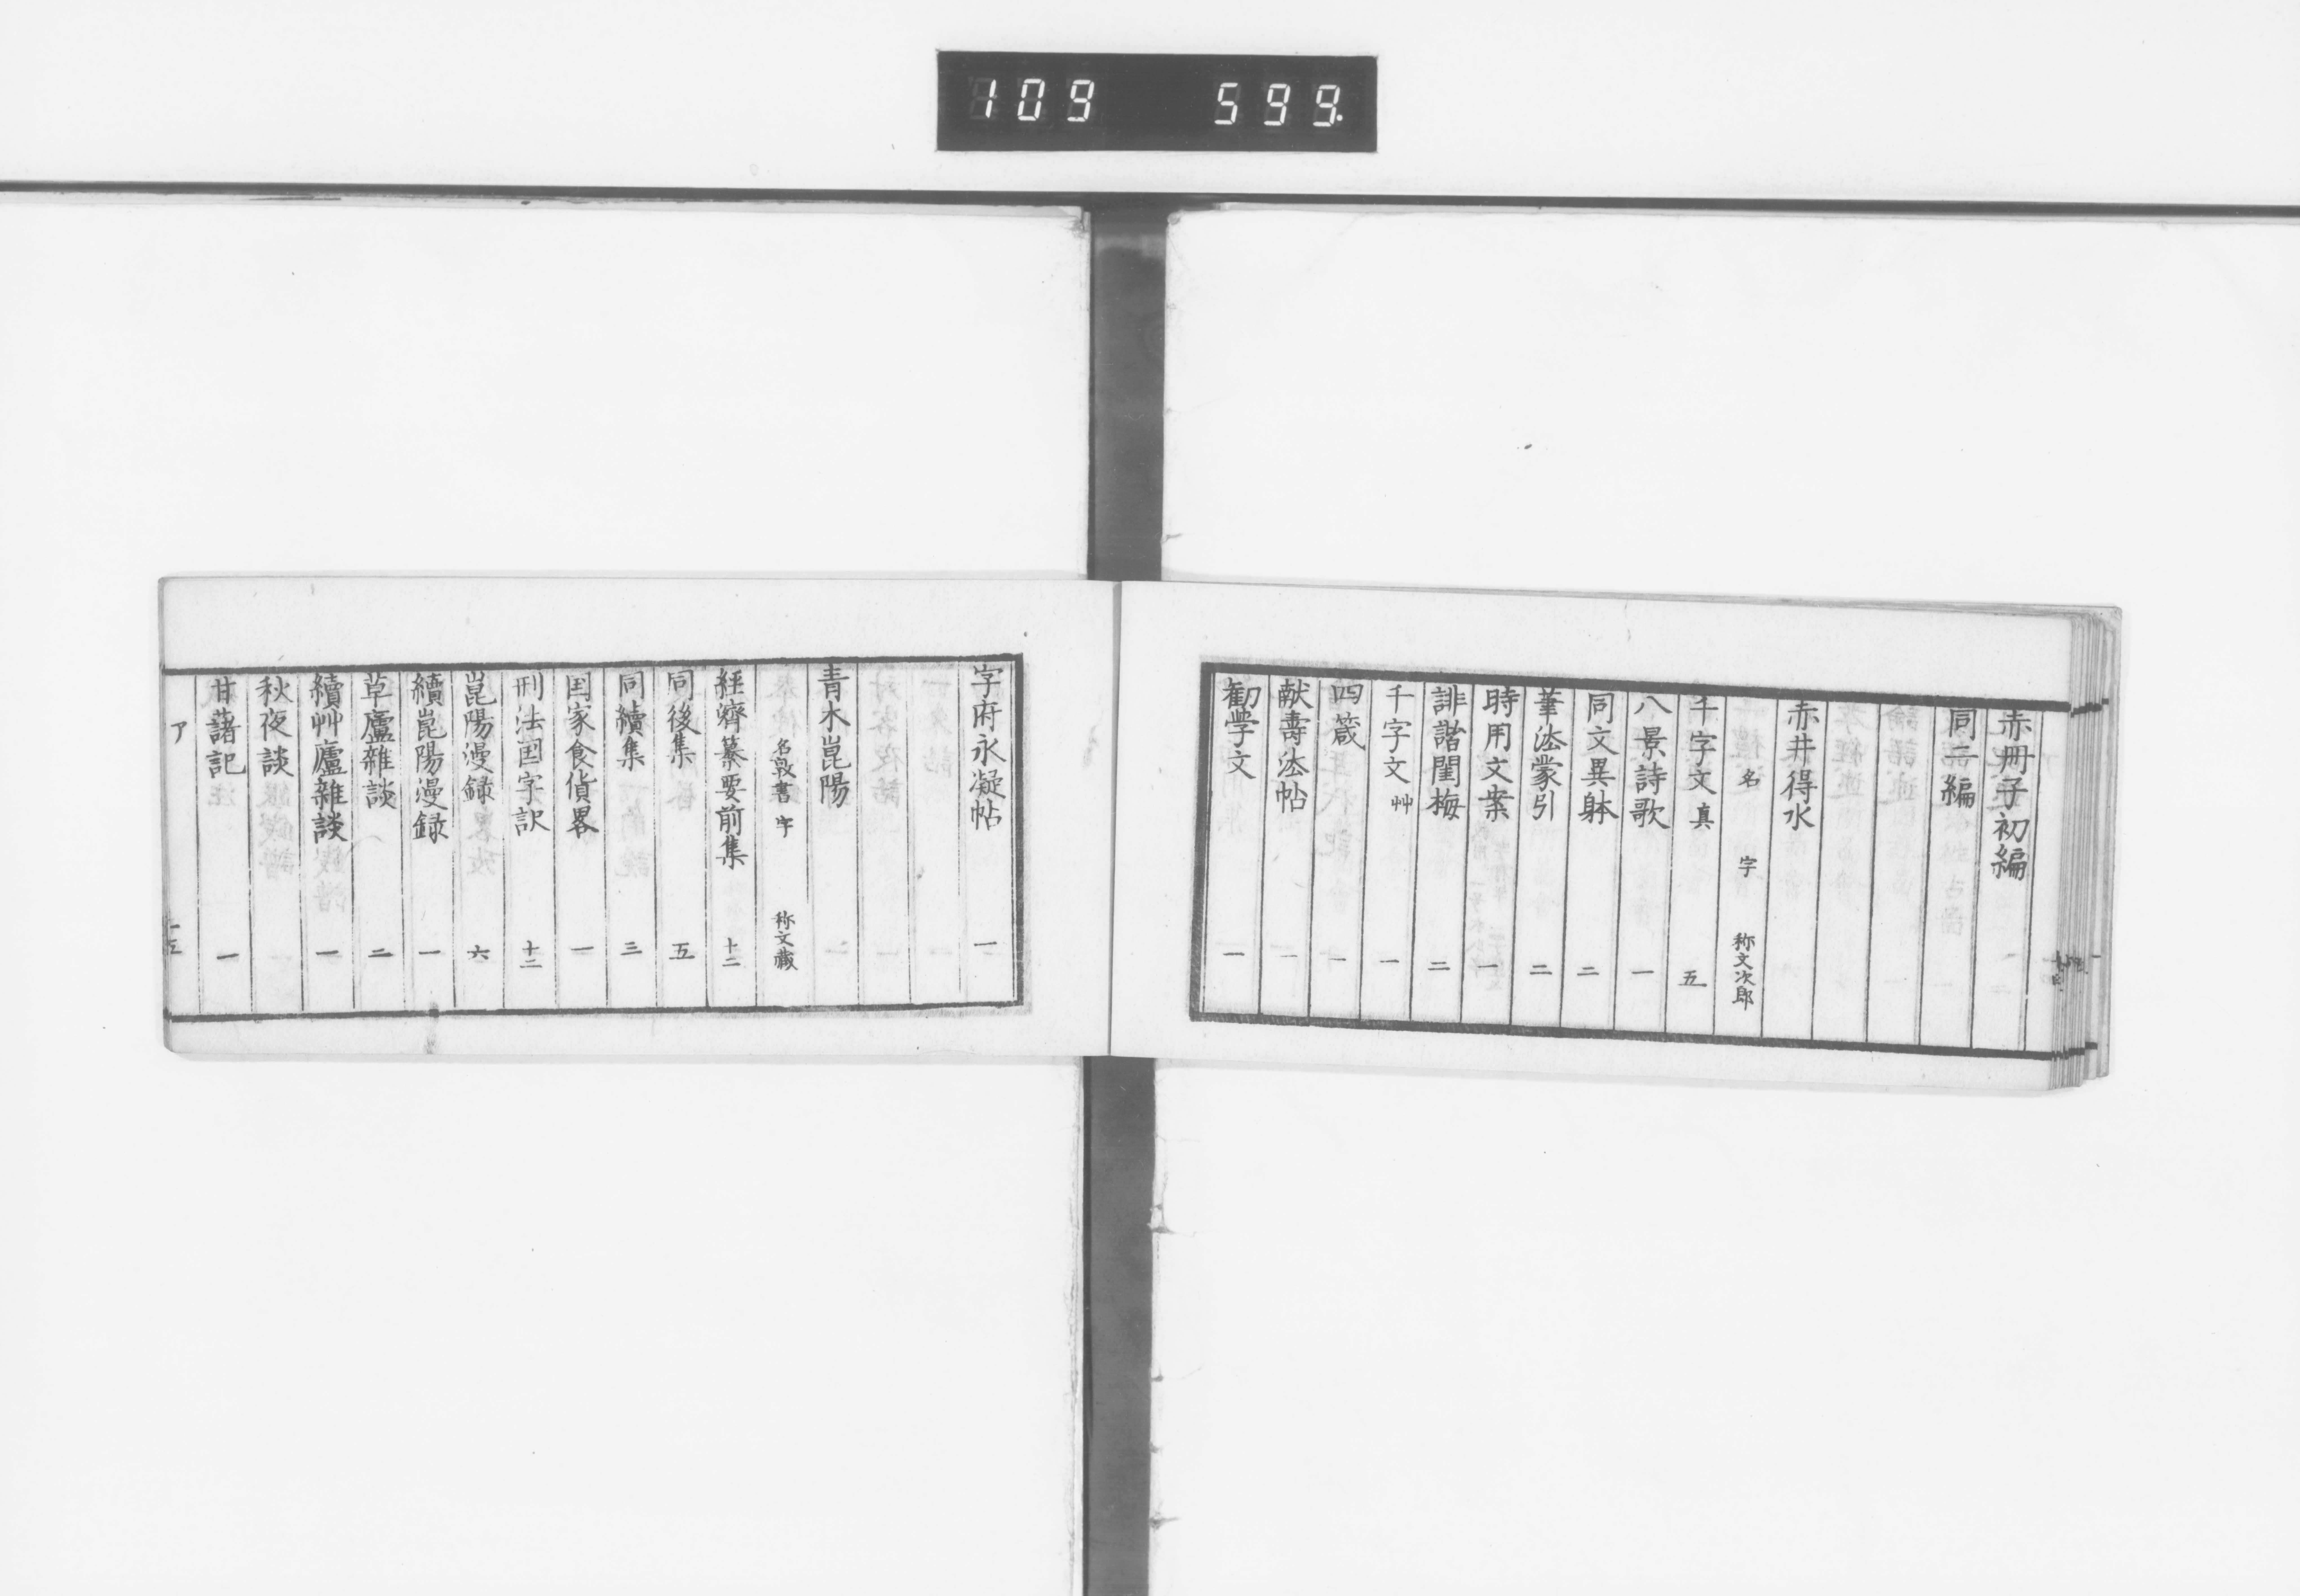 109 599.
赤冊子初編
同二編
赤井得水
名 字 称文次郎
千字文 真 五
八景詩歌 一
同文異躰 二
筆法蒙引 二
時用文案 一
誹諧閨梅 二
千字文 艸 一
四箴 一
献壽法帖 一
勧学文 一
字府永凝帖 一
青木崑陽
名敦書 字 称文藏
経濟纂要前集 十二
同後集 五
同續集 三
国家食貨畧 一
刑法国字訳 十二
崑陽漫録 六
續崑陽漫録 一
草廬雜談 二
續艸廬雜談 一
秋夜談
甘藷記 一
ア